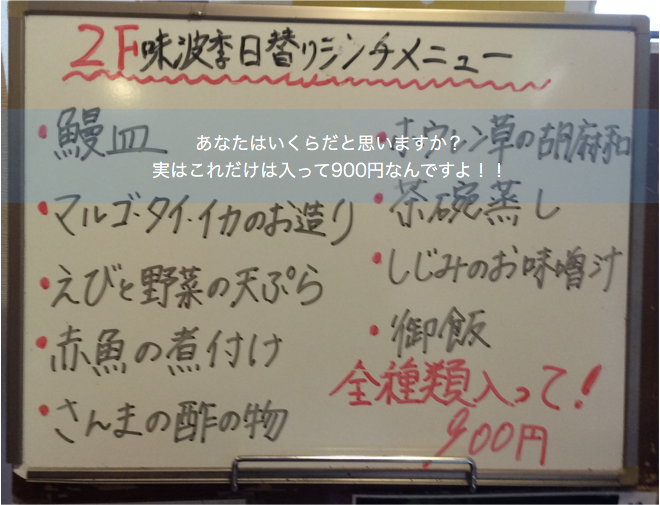 2F味波季日替りランチメニュー
・鰻皿
・マルゴ・タイ・イカのお造り
・えびと野菜の天ぷら
・赤魚の煮付け
・さんまの酢の物
・ホウレン草の胡麻和
・茶碗蒸し
・しじみのお味噌汁
・御飯
全種類入って!
900円
あなたはいくらだと思いますか？
実はこれだけは入って900円なんですよ！！